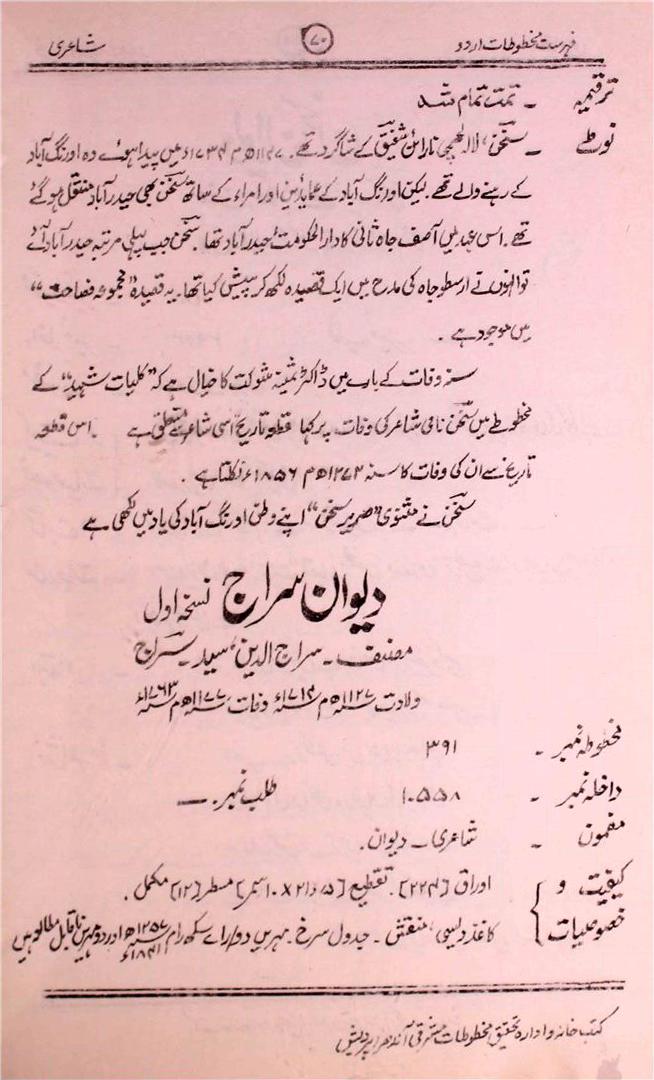 فہرست مخطوطات اردو ۷۰ شاعری
ترقیمہ ـ تمت تمام شد
نوٹ ـ سخنؔ، لالہ لچھمی نارائن شفیقؔ کے شاگرد تھے۔ ۱۱۴۷ھ م ۱۷۳۴ء میں پیدا ہوئے وہ اورنگ آباد
کے رہنے والے تھے۔ لیکن اورنگ آباد کے عمایدین اور امراء کے ساتھ سخنؔ بھی حیدرآباد منتقل ہو گئے
تھے۔ اس عہد میں آصف جاہ ثانی کا دارالحکومت حیدرآباد تھا۔ سخنؔ جب پہلی مرتبہ حیدرآباد آئے
تو انہوں نے ارسطو جاہ کی مدح میں ایک قصیدہ لکھ کر پیش کیا تھا۔ یہ قصیدہ "مجموعہ فصاحت"
میں موجود ہے۔
سنہ وفات کے بارے میں ڈاکٹر ثمینہ شوکت کا خیال ہے کہ "کلیات شہید" کے
مخطوطے میں سخنؔ نامی شاعر کی وفات پر کہا قطعہ تاریخ اسی شاعر سے متعلق ہے ۔ اس قطعہ
تاریخ سے ان کی وفات کا سنہ ۱۲۷۳ھ م ۱۸۵۶ء نکلتا ہے۔
سخنؔ نے مثنوی "صریر سخن" اپنے وطن اورنگ آباد کی یاد میں لکھی ہے
دیوان سراج نسخہ اول
مصنف ـ سراج الدین، سید ـ سراجؔ
ولادت ۱۱۲۷ھ م ۱۷۱۴ء وفات ۱۱۷۷ھ م ۱۷۶۳ء
مخطوطہ نمبر ـ ۳۹۱
داخلہ نمبر ـ ۱۰۵۵۸ طلب نمبر ـ
مضمون ـ شاعری ـ دیوان۔
کیفیت و اوراق [۲۲۴]۔ تقطیع [۲۱٫۵ × ۱۰ سمر] مسطر [۱۲] مکمل۔
خصوصیات کاغذ دیسی، منقش ـ جدول سرخ۔ مہریں دو / رائے سکھ رام ۱۲۵۷ھ ۱۸۴۱ء اور دو مہریں ناقابل مطالعہ ہیں
کتب خانہ و ادارہ تحقیق مخطوطات مشرقی آندھرا پردیش